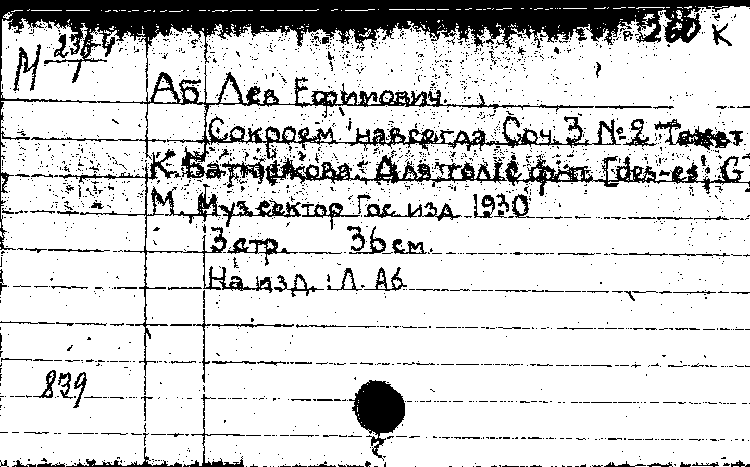 260 К
М 236-4
1
Аб, Лев Ефимович.
Сокроем навсегда. Соч. 3 №2 Текст
К. Батюшкова. Для голос ф-п. [des-es'; G
М. Муз сектор Гос. изд 1930
3 стр. 36 см.
На изд. : Л. Аб
839